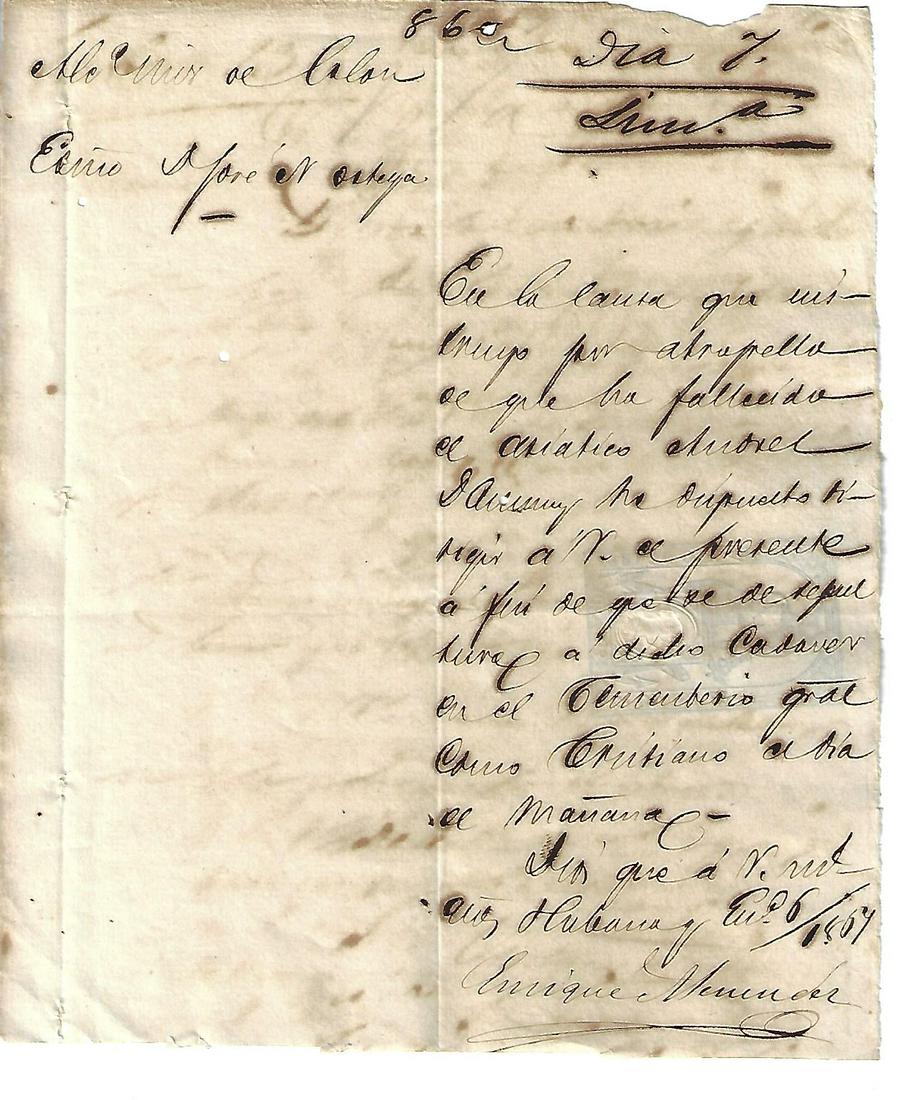 Día 7.
Alc Mor de Colon
Esmo D José N Ortega
En la causa que ins-
truyo por atropello
de que ha fallecido
el asiático Andrel
ha dispuesto di-
rigir á V. el presente
á fin de que se de sepul
tura á dicho Cadaver
en el Cementerio gral
Como Cristiano el dia
de Mañana -
Dios gue á V. ms
añs Habana y En.o 6/1867
Enrique Menendez